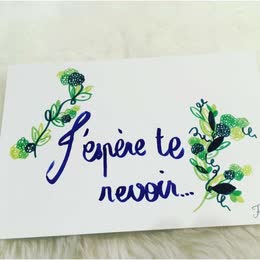 J'espère te
revoir...